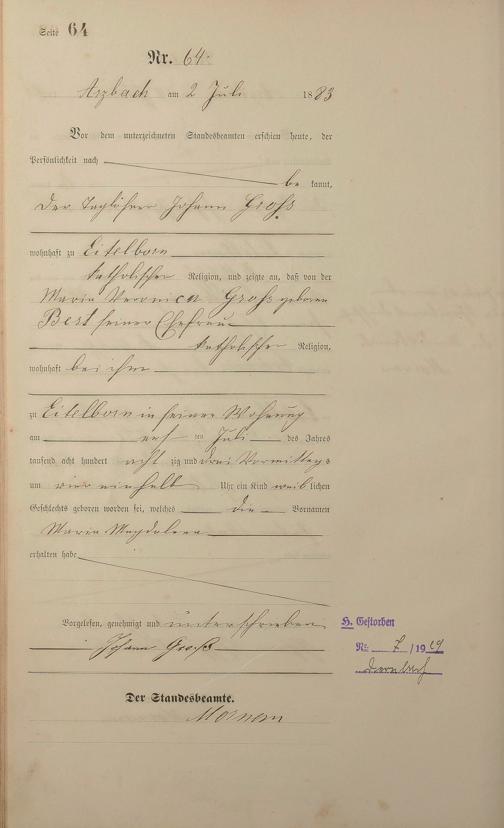 Seite 64
Nr. 64.
Arzbach am 2 Juli 1883
Vor dem unterzeichneten Standesbeamten erschien heute, der
Persönlichkeit nach
be kannt,
der Taglöhner Johann Groß
wohnhaft zu Eitelborn
katholischer Religion, und zeigte an, daß von der
Maria Veronica Groß geboren
Best seiner Ehefrau
katholischer Religion,
wohnhaft bei ihm
zu Eitelborn in seiner Wohnung
am ersten Juli des Jahres
tausend acht hundert acht zig und drei Vormittags
um vier einhalb Uhr ein Kind weiblichen
Geschlechts geboren worden sei, welches die Vornamen
Maria Magdalena
erhalten habe
Vorgelesen, genehmigt und unterschrieben
Johann Groß
H. Gestorben
Nr. 7/19
Der Standesbeamte.